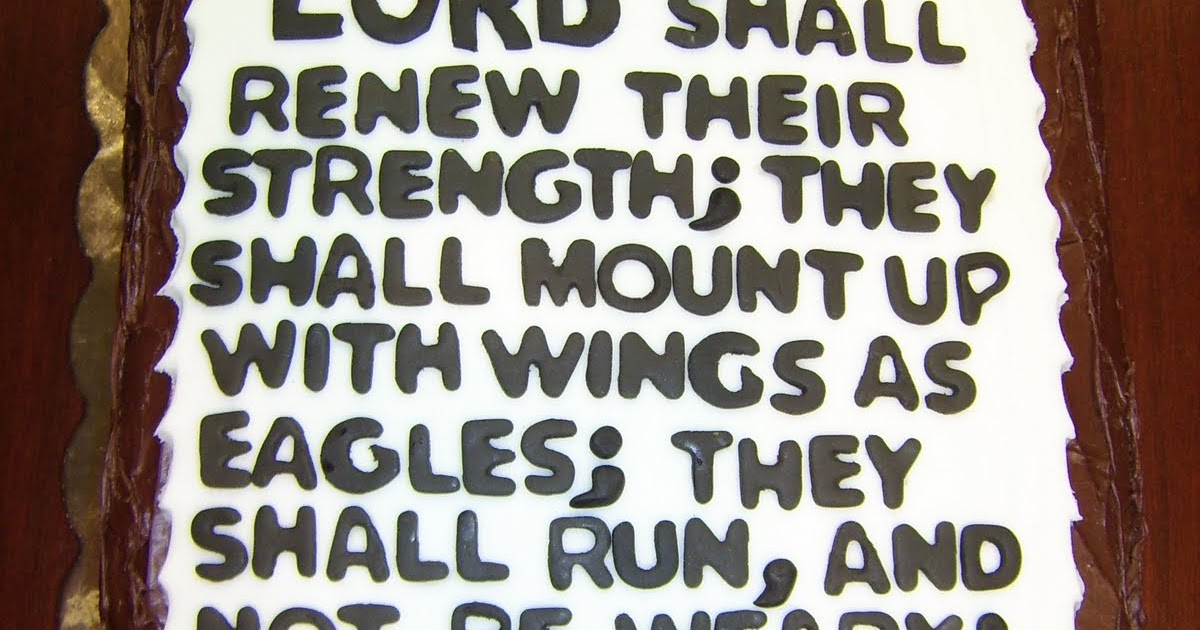 LORD SHALL
RENEW THEIR
STRENGTH; THEY
SHALL MOUNT UP
WITH WINGS AS
EAGLES; THEY
SHALL RUN, AND
NOT BE WEARY;